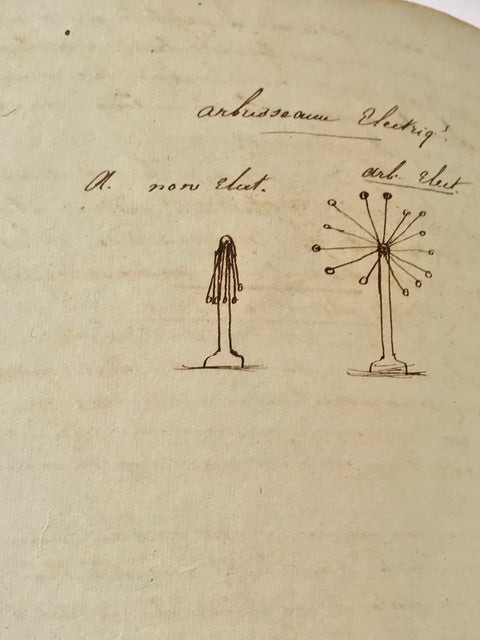 arbrisseau Electriq.
A. non Elect.
arb. Elect.